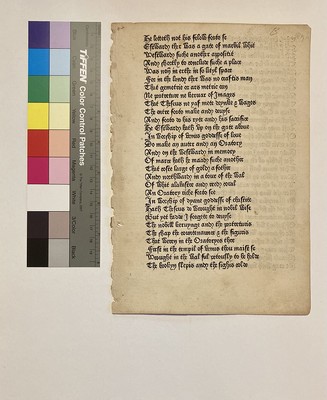 TIFFEN Color Control Patches
White
3/Color
Black
He letteth not his felow forto se
Estward ther was a gate of marbil whit
Westward suche another apposite
And shortly to conclude suche a place
Was non in erthe in so lityl space
For in the lande ther was no crafty man
That gemetrie or ars metric can
Ne portreour ne keruar of Images
That Theseus ne yaf mete drynke & wages
The forto make and deuyse
And forto do his ryte and his sacrifice
He Estward hath vp on the gate aboue
In worship of venus goddesse of loue
Do make an auter and an Oratory
And on the Westward in memory
Of mars hath he made suche another
That coste large of gold a fother
And northward in a toure of the wal
Of whit alabastre and reed coral
An Oratory riche forto see
In worship of dyane goddesse of chastite
Hath Theseus do wrought in nobil wise
But yet hadde I foryete to deuyse
The nobell keruyng and the portretures
The shap the countenaunce & the figuris
That were in the Oratoryes thre
First in the tempil of venus thou maist se
Wrought in the wal ful petously to be holde
The broken slepis and the sighis colde